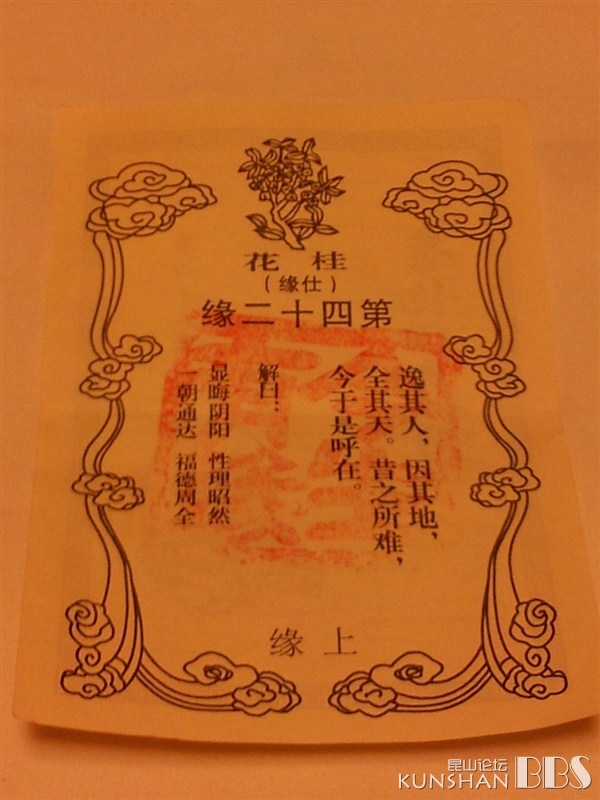 桂花
（仕缘）
第四十二缘
逸其人，因其地，
全其天。昔之所难，
今于是呼在。
解曰：
显晦阴阳 性理昭然
一朝通达 福德周全
上缘
昆山论坛
KUNSHAN BBS